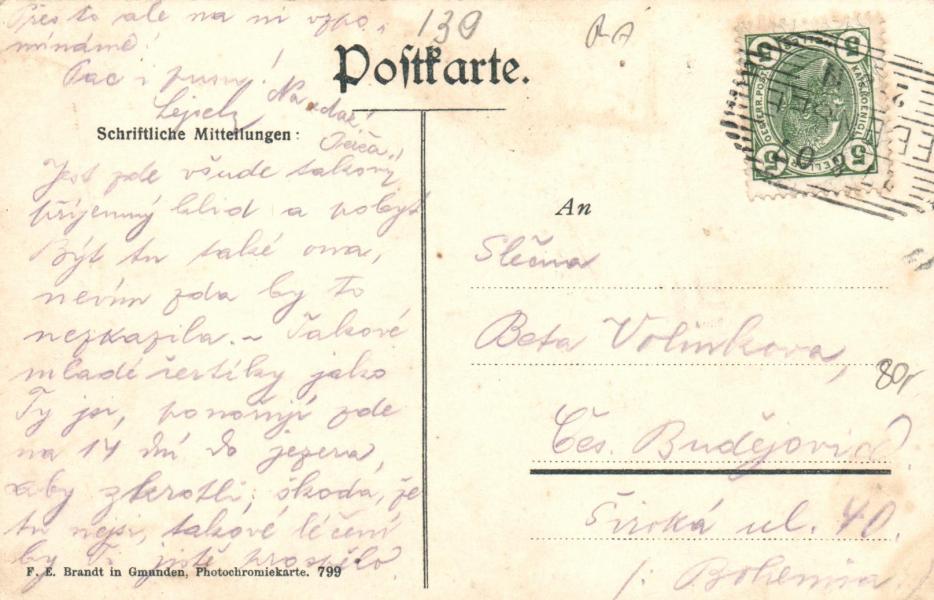 Přes to ale na ni vzpo-
mínáme!
Pac i pusu!
Na zdar!
139
Postkarte.
Schriftliche Mitteilungen:
Jest zde všude takový
příjemný klid a pobyt
Být tu také ona,
nevím zda by to
nezkazila. – Takové
mladé čertíky jako
Ty jsi, ponořují zde
na 14 dní do jezera,
aby zkrotli; škoda, že
tu nejsi, takové léčení
by Ti jistě prospělo.
F. E. Brandt in Gmunden, Photochromiekarte. 799
5
5
5
5
An
Slečna
Beta Volinkova,
Čes. Budějovice
Široká ul. 40.
/: Bohemia
80,-